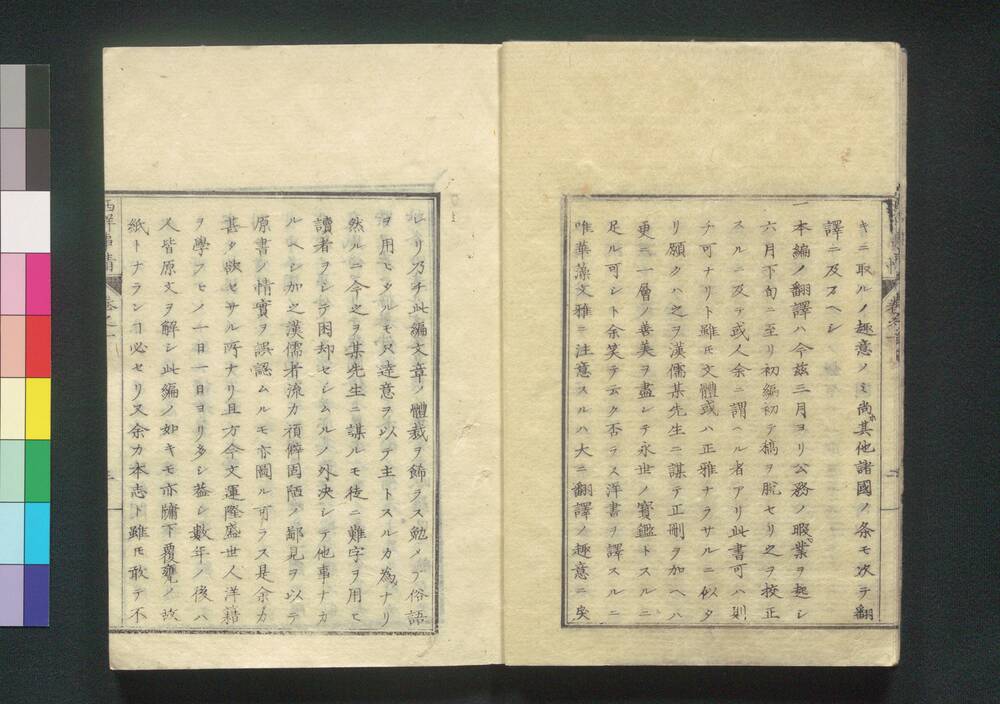 キニ取ルノ趣意ノミ尚其他諸國ノ条モ次テ翻
譯ニ及フヘシ
一本編ノ翻譯ハ今玆三月ヨリ公務ノ暇業ヲ起シ
六月下旬ニ至リ初編初テ稿ヲ脱セリ之ヲ校正
スルニ及テ或人余ニ謂ヘル者アリ此書可ハ則
チ可ナリト雖モ文體或ハ正雅ナラサルニ似タ
リ願クハ之ヲ漢儒某先生ニ謀テ正刪ヲ加ヘハ
更ニ一層ノ善美ヲ盡シテ永世ノ寶鑑トスルニ
足ル可シト余笑テ云ク否ラス洋書ヲ譯スルニ
唯華藻文雅ニ注意スルハ大ニ翻譯ノ趣意ニ戾
レリ乃チ此編文章ノ體裁ヲ飾ラス勉メテ俗語
ヲ用ヒタルモ只達意ヲ以テ主トスルカ為ナリ
然ルニ今之ヲ某先生ニ謀ルモ徒ニ難字ヲ用ヒ
讀者ヲシテ困却セシムルノ外決シテ他事ナカ
ルヘシ加之漢儒者流カ頑僻固陋ノ鄙見ヲ以テ
原書ノ情實ヲ誤認ムルモ亦圖ル可ラス是余カ
甚タ欲セサル所ナリ且方今文運隆盛世人洋籍
ヲ學フモノ一日一日ヨリ多シ蓋シ數年ノ後ハ
人皆原文ヲ解シ此編ノ如キモ亦牖下覆甕ノ故
紙トナランヿ必セリ又余カ本志ト雖モ敢テ不
西洋事情
卷之一